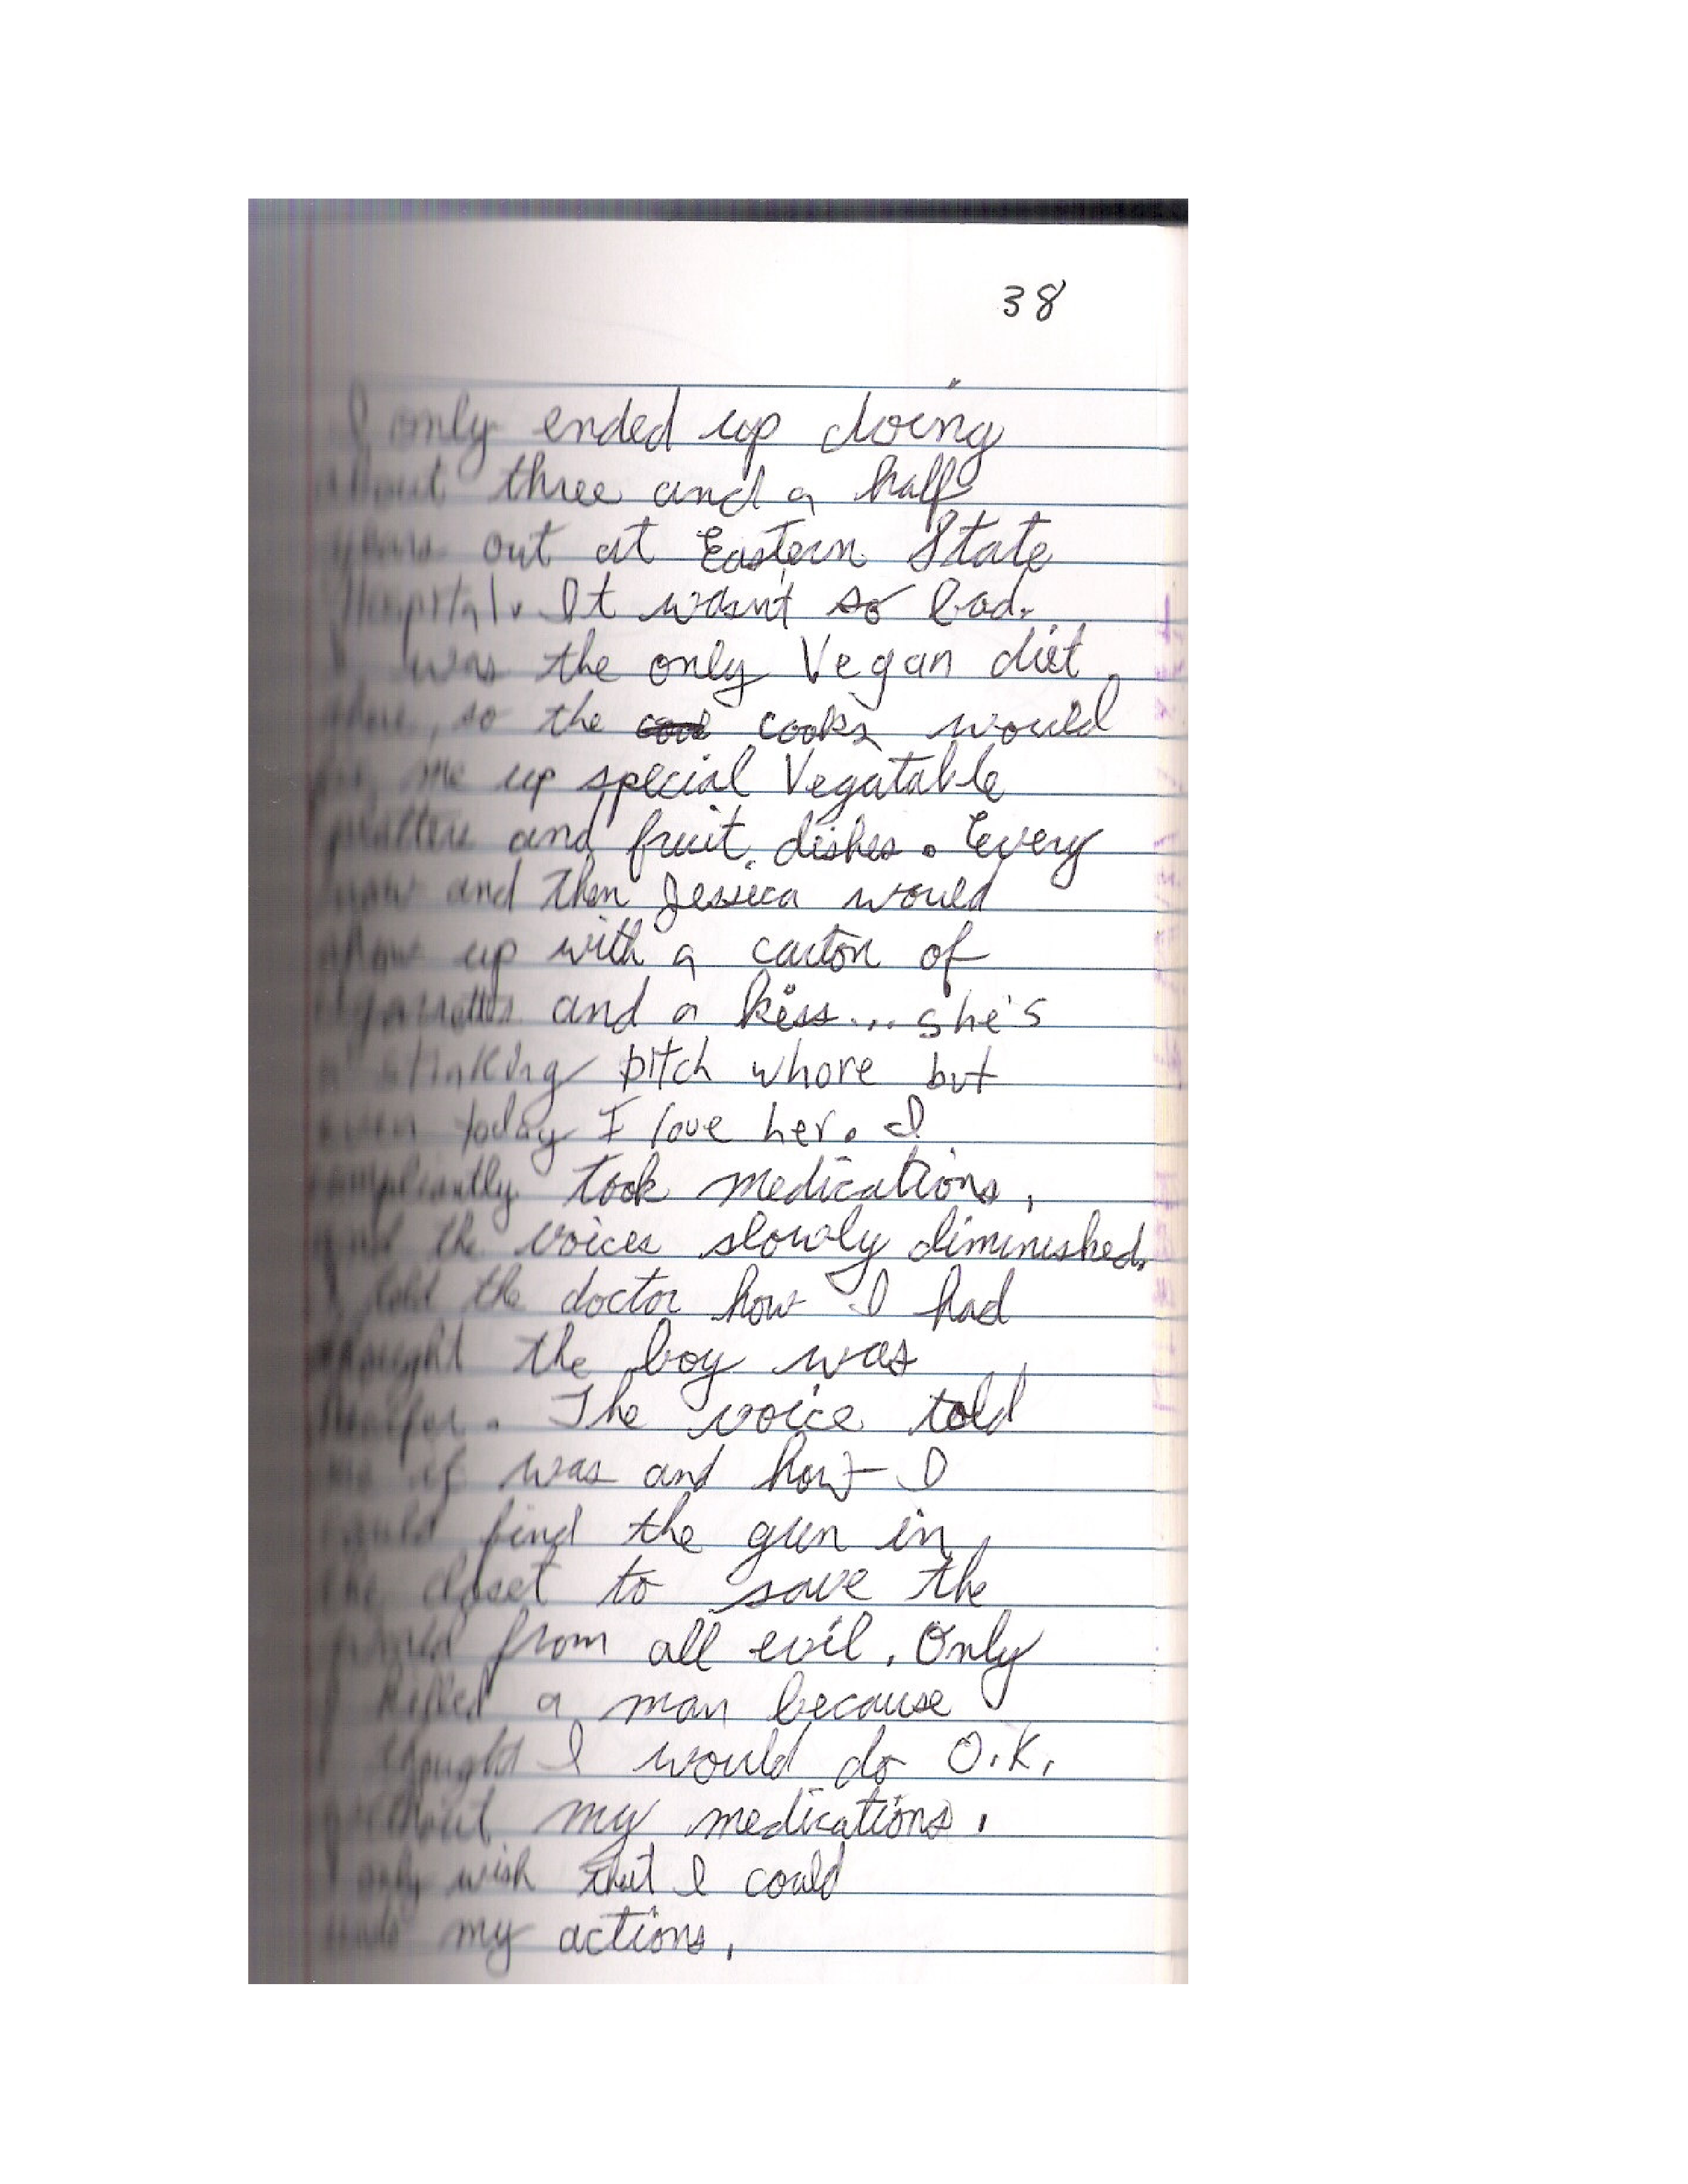 38
I only ended up doing
about three and a half
years out at Eastern State
Hospital. It wasn't so bad.
I was the only Vegan diet
there, so the cooks would
fix me up special Vegatable
platters and fruit dishes. Every
now and then Jessica would
show up with a carton of
cigarrettes and a kiss... she's
a stinking bitch whore but
even today I love her. I
compliantly took medications,
and the voices slowly diminished.
I told the doctor how I had
thought the boy was
The voice told
me it was and how I
could find the gun in
the closet to save the
world from all evil. Only
I killed a man because
I thought I would do O.K.
without my medications.
I only wish that I could
undo my actions.